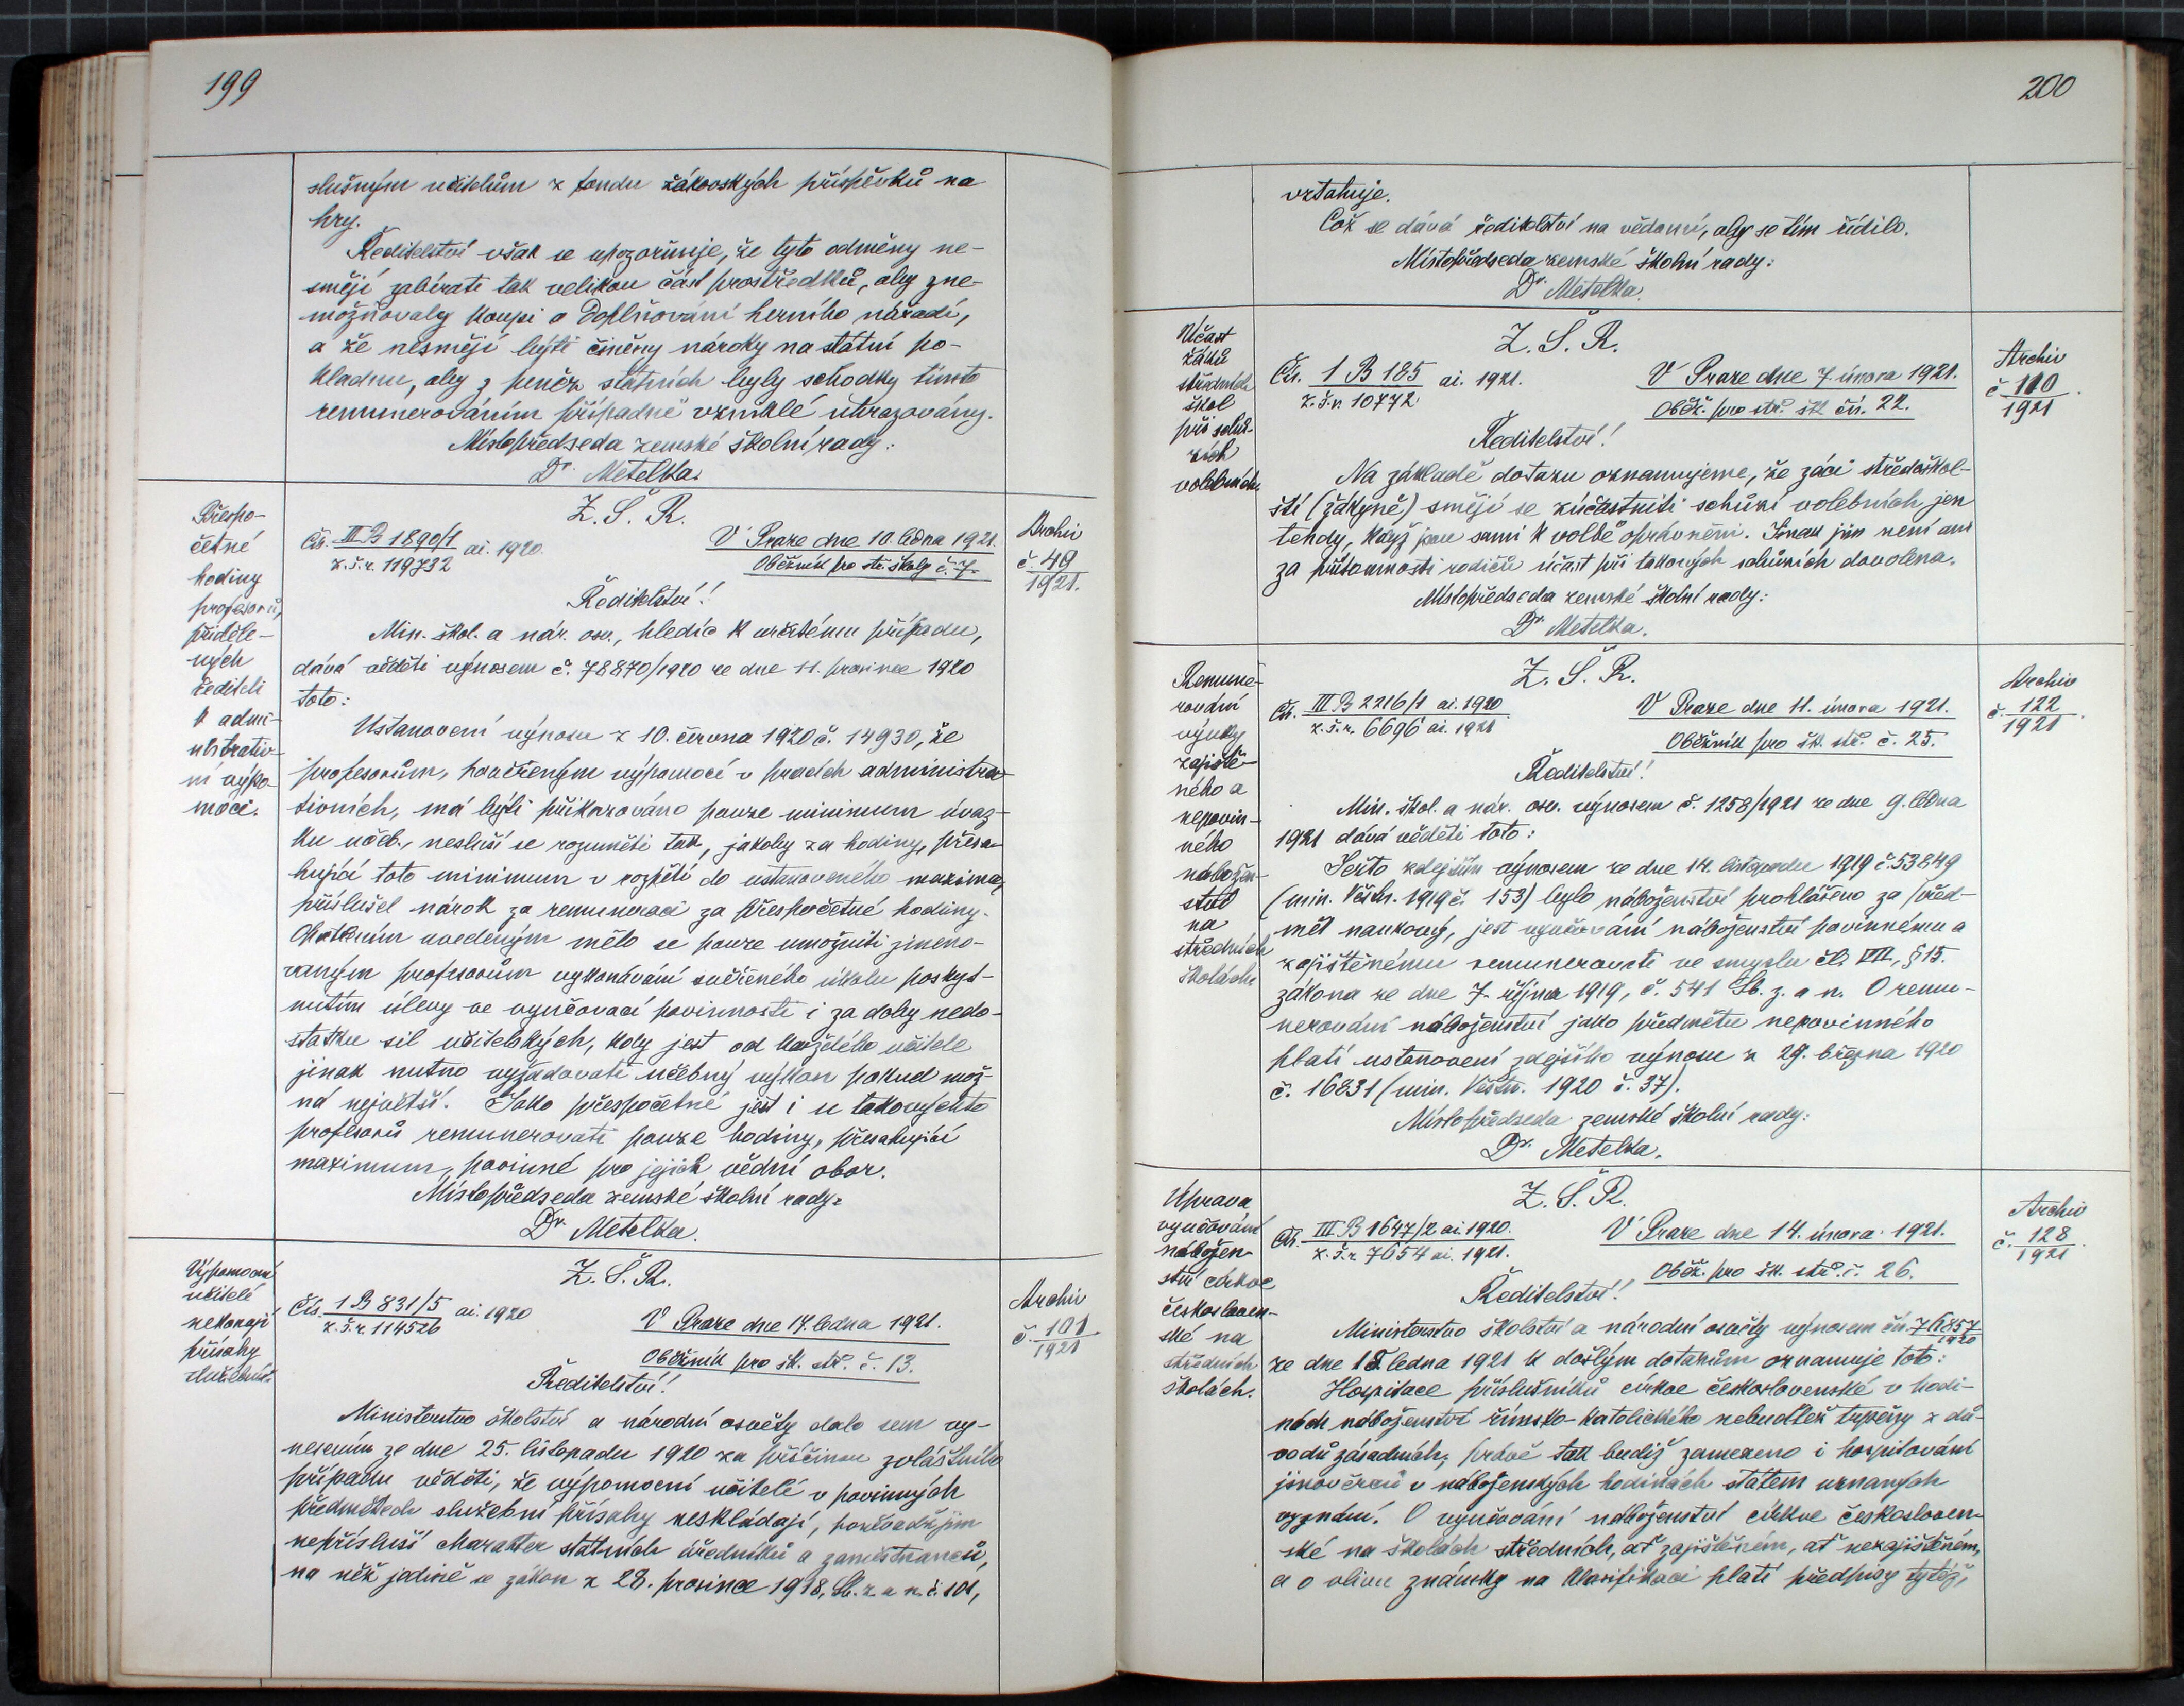 199
slušným učitelům z fondu žákovských příspěvků na
hry.
Ředitelství však se upozorňuje, že tyto odměny ne-
smějí zabírati tak velikou část prostředků, aby zne-
možňovaly koupi a doplňování herního nářadí,
a že nesmějí býti činěny nároky na státní po-
kladnu, aby z peněz státních byly schodky tímto
remunerováním případně vzniklé uhrazovány.
Místopředseda zemské školní rady:
Dr. Metelka.
Přespo-
četné
hodiny
profesorů,
příděle-
ných
řediteli
k admi-
nistrativ-
ní výpo-
moci.
Z. Š. R.
Čís. III B 1890/1 ai. 1920.
z. š. r. 119732
V Praze dne 10. ledna 1921.
Oběžník pro stř. školy č. 7.
Archiv
č. 49
1921.
Ředitelství!
Min. škol. a nár. osv., hledíc k určitému případu,
dává věděti výnosem č. 78870/1920 ze dne 11. prosince 1920
toto:
Ustanovení výnosu z 10. června 1920 č. 14930, že
profesorům, pověřeným výpomocí v pracích administra-
tivních, má býti přikazováno pouze minimum úvaz-
ku učeb., nesluší se rozuměti tak, jakoby za hodiny, přesa-
hující toto minimum v rozpětí do ustanoveného maxima,
příslušel nárok za remuneraci za přespočetné hodiny.
Opatřením uvedeným mělo se pouze umožniti jmeno-
vaným profesorům vykonávání svěřeného úkolu poskyt-
nutím úlevy ve vyučovací povinnosti i za doby nedo-
statku sil učitelských, kdy jest od každého učitele
jinak nutno vyžadovati učebný výkon pokud mož-
ná největší. Jako přespočetné jest i u takovýchto
profesorů remunerovati pouze hodiny, přesahující
maximum, povinné pro jejich vědní obor.
Místopředseda zemské školní rady:
Dr. Metelka.
Výpomocní
učitelé
nekonají
přísahy
služební.
Z. Š. R.
Čís. 1 B 831/5 ai. 1920
z. š. r. 114526
V Praze dne 17. ledna 1921.
Oběžník pro šk. stř. č. 13.
Archiv
č. 101
1921
Ředitelství!
Ministerstvo školství a národní osvěty dalo sem vy-
nesením ze dne 25. listopadu 1920 za příčinou zvláštního
případu věděti, že výpomocní učitelé v povinných
předmětech služební přísahy neskládají, poněvadž jim
nepřísluší charakter státních úředníků a zaměstnanců,
na něž jedině se zákon z 28. prosince 1918, Sb. z. a n. č. 101,
200
vztahuje.
Což se dává ředitelství na vědomí, aby se tím řídilo.
Místopředseda zemské školní rady:
Dr. Metelka.
Účast
žáků
středních
škol
při schů-
zích
volebních.
Z. Š. R.
Čís. 1 B 185 ai. 1921.
z. š. r. 10772
V Praze dne 7. února 1921.
Oběž. pro stř. šk. čís. 22.
Archiv
č 110
1921
Ředitelství!
Na základě dotazu oznamujeme, že žáci středoškol-
ští (žákyně) smějí se zúčastniti schůzí volebních jen
tehdy, když jsou sami k volbě oprávněni. Jinak jim není ani
za přítomnosti rodičů účast při takových schůzích dovolena.
Místopředseda zemské školní rady:
Dr. Metelka.
Remune-
rování
výuky
zajiště-
ného a
nepovin-
ného
nábožen-
ství
na
středních
školách.
Z. Š. R.
Čís. III B 2216/1 ai. 1920
z. š. r. 6696 ai. 1921
V Praze dne 11. února 1921.
Oběžník pro šk. stř. č. 25.
Archiv
č. 122
1921
Ředitelství!
Min. škol. a nár. osv. výnosem č. 1258/1921 ze dne 9. ledna
1921 dává věděti toto:
Ježto zdejším výnosem ze dne 14. listopadu 1919 č. 53849
(min. Věstn. 1919 č. 153) bylo náboženství prohlášeno za před-
mět naukový, jest vyučování náboženství povinnému a
zajištěnému remunerovati ve smyslu čl. VII., § 15.
zákona ze dne 7. října 1919, č. 541 Sb. z. a n. O remu-
nerování náboženství jako předmětu nepovinného
platí ustanovení zdejšího výnosu z 29. března 1920
č. 16831 (min. Věstn. 1920 č. 37).
Místopředseda zemské školní rady:
Dr. Metelka.
Úprava
vyučování
nábožen-
ství církve
českosloven-
ské na
středních
školách.
Z. Š. R.
Čís. III B 1647/2 ai. 1920.
z. š. r. 7654 ai. 1921.
V Praze dne 14. února 1921.
Oběž. pro šk. stř. č. 26.
Archiv
č. 128
1921
Ředitelství!
Ministerstvo školství a národní osvěty výnosem čís. 76857
1920
ze dne 15. ledna 1921 k došlým dotazům oznamuje toto:
Hospitace příslušníků církve československé v hodi-
nách náboženství římsko-katolického nebuďtež trpěny z dů-
vodů zásadních; právě tak budiž zamezeno i hospitování
jinověrců v náboženských hodinách státem uznaných
vyznání. O vyučování náboženství církve českosloven-
ské na školách středních, ať zajištěném, ať nezajištěném,
a o vlivu známky na klasifikaci platí předpisy tytéž,